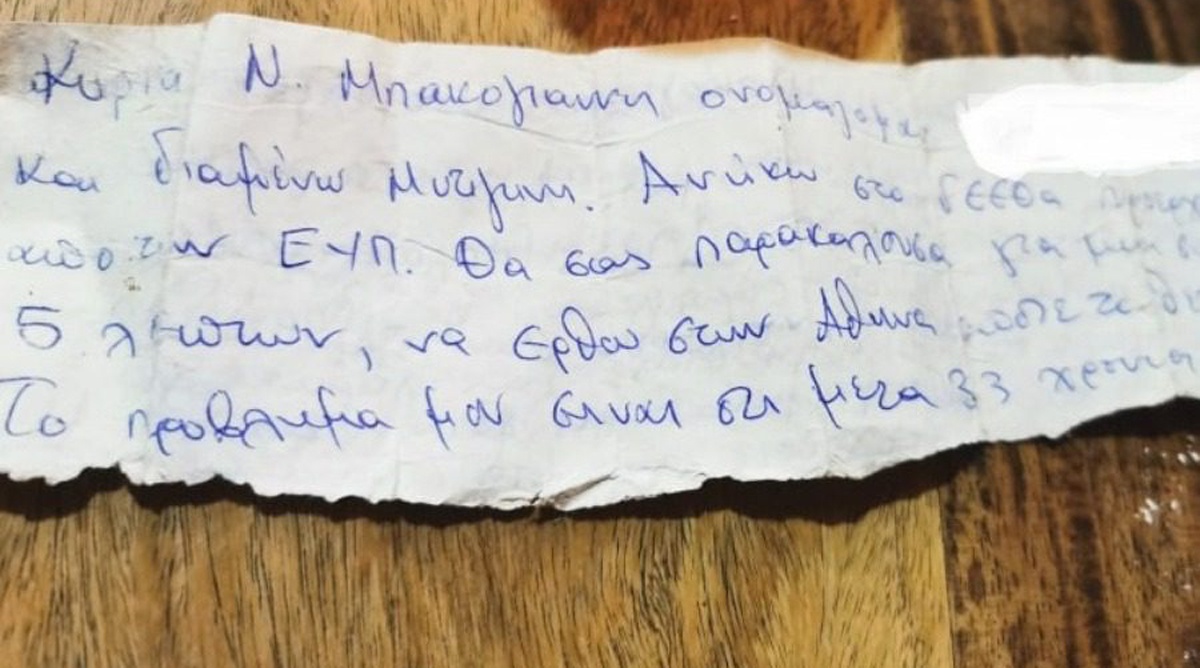 Κυρία Ν. Μπακογιαννη ονομαζομαι
και διαμένω Μυτιληνη. Ανήκω στο ΓΕΕΘΑ
από την ΕΥΠ. Θα σας παρακαλουσα για μια
5 λεπτων, να ερθω στην Αθηνα
Το προβλημα μου ειναι οτι μετα 33 χρονια